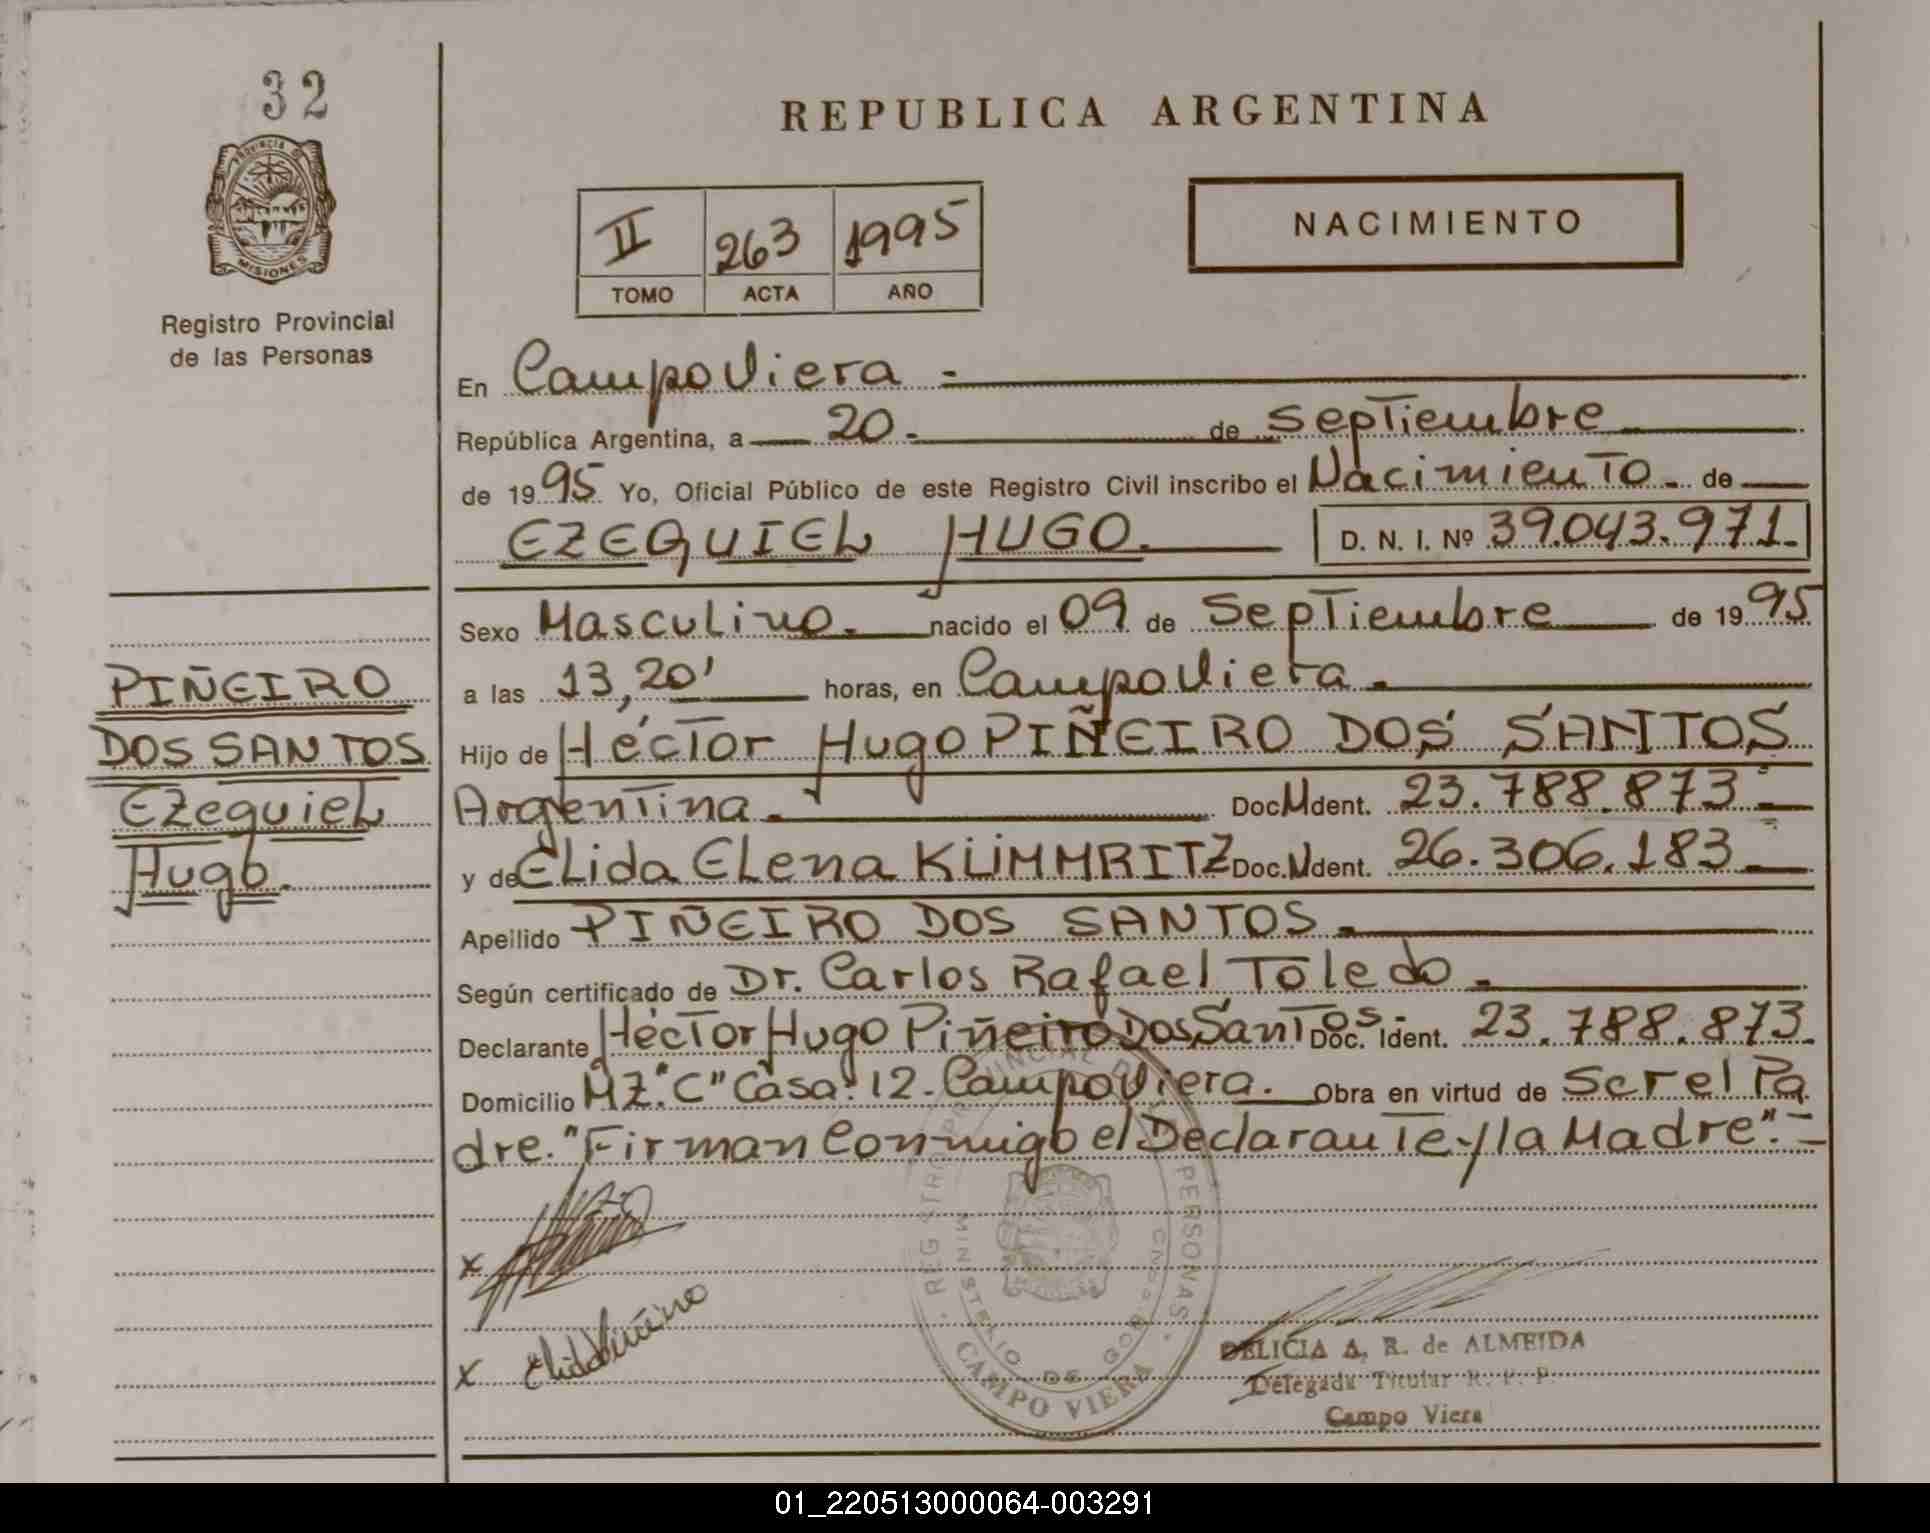 32
PROVINCIA DE
MISIONES
Registro Provincial
de las Personas
PIÑEIRO
DOS SANTOS
Ezequiel
Hugo.
REPUBLICA ARGENTINA
II 263 1995
TOMO ACTA AÑO
NACIMIENTO
En CampoViera -
República Argentina, a 20. de Septiembre
de 1995 Yo, Oficial Público de este Registro Civil inscribo el Nacimiento. de
EZEQUIEL HUGO. D. N. I. Nº 39.043.971.
Sexo Masculino. nacido el 09 de Septiembre de 1995
a las 13,20' horas, en CampoViera.
Hijo de Héctor Hugo PIÑEIRO DOS SANTOS
Argentina. Doc. Ident. 23.788.873 -
y de Elida Elena KÜMMRITZ Doc. Ident. 26.306.183
Apellido PIÑEIRO DOS SANTOS.
Según certificado de Dr. Carlos Rafael Toledo.
Declarante Héctor Hugo Piñeiro Dos Santos. Doc. Ident. 23.788.873.
Domicilio MZ. "C" Casa: 12 - CampoViera. Obra en virtud de Ser el Pa
dre. "Firman Conmigo el Declarante y la Madre". -
x
x
REGISTRO PROVINCIAL DE LAS PERSONAS
MINISTERIO DE GOB.
CAMPO VIERA
DELICIA A. R. de ALMEIDA
Delegada Titular R. P. P.
Campo Viera
01_220513000064-003291